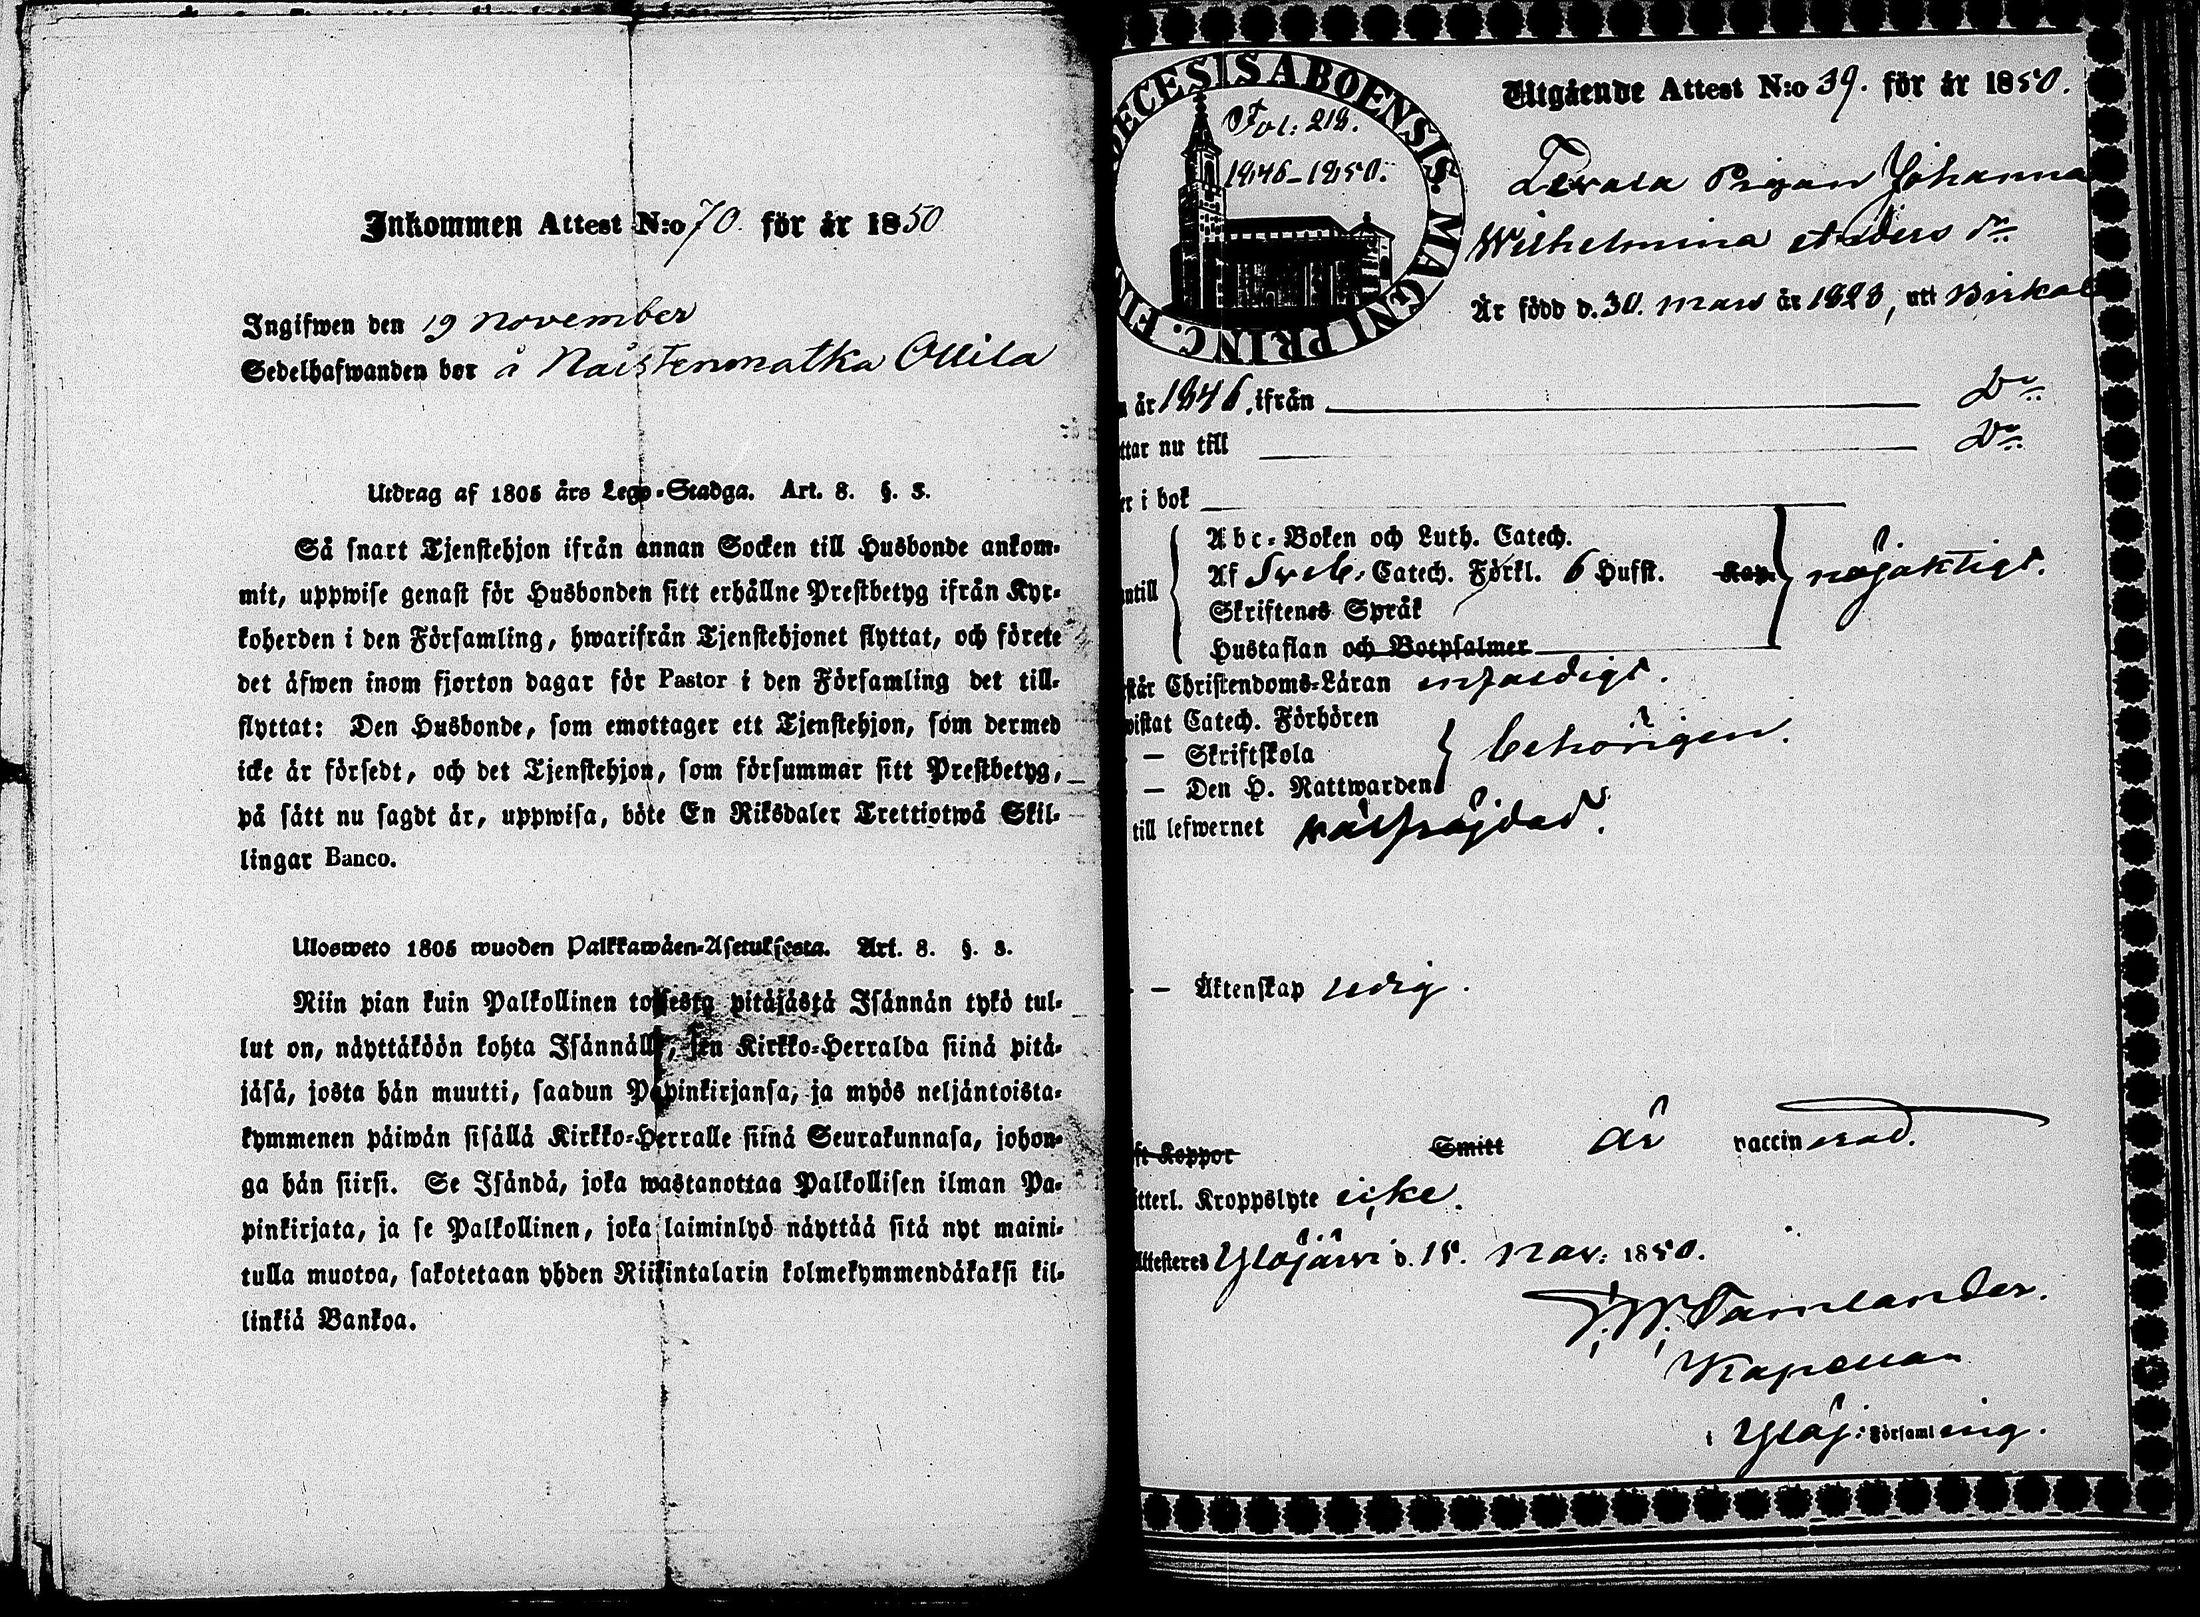 Inkommen Attest N:o 70. för år 1850
Ingifwen den 19 november
Sedelhafwanden bor å Naistenmatka Ollila
Utdrag af 1805 års Lego-Stadga. Art. 8. §. 3.
Så snart Tjenstehjon ifrån annan Socken till Husbonde ankom-
mit, uppwise genast för Husbonden sitt erhållne Prestbetyg ifrån Kyr-
koherden i den Församling, hwarifrån Tjenstehjonet flyttat, och förete
det äfwen inom fjorton dagar för Pastor i den Församling det till-
flyttat: Den Husbonde, som emottager ett Tjenstehjon, som dermed
icke är försedt, och det Tjenstehjon, som försummar sitt Prestbetyg,
på sätt nu sagdt är, uppwisa, böte En Riksdaler Trettiotwå Skil-
lingar Banco.
Ulosweto 1805 wuoden Palkkawäen-Asetuksesta. Art. 8. §. 3.
Niin pian kuin Palkollinen toisesta pitäjästä Isännän tykö tul-
lut on, näyttäköön kohta Isännälle, sen Kirkko-Herralda siinä pitä-
jäsä, josta hän muutti, saadun Papinkirjansa, ja myös neljäntoista-
kymmenen päiwän sisällä Kirkko-Herralle siinä Seurakunnasa, johon-
ga hän siirsi. Se Isändä, joka wastanottaa Palkollisen ilman Pa-
pinkirjata, ja se Palkollinen, joka laiminlyö näyttää sitä nyt maini-
tulla muotoa, sakotetaan yhden Riikintalarin kolmekymmendäkaksi kil-
linkiä Bankoa.
ECESIS ABOENSIS. MAGNI PRINC. FI
Fol: 218.
1846-1850.
Utgående Attest N:o 39. för år 1850.
Pigan Johanna
Wilhelmina Anders dr
År född d. 30. mars år 1828, uti Birkal
år 1846. ifrån Do
ttar nu till Do
er i bok
ntill
Abc-Boken och Luth. Catech.
Af Sveb. Catech. Förkl. 6 Hufst. Kap.
Skriftenes Språk
Hustaflan och Botpsalmer
nöjaktigt.
står Christendoms-Läran enfaldigt.
vistat Catech. Förhören
— Skriftskola
— Den H. Nattwarden
behörigen.
till lefwernet välfräjdad.
— Äktenskap ledig.
ft Koppor Smitt är vaccinerad.
itterl. Kroppslyte icke.
Attesteres Ylöjärvi d. 18. nov: 1850.
Tamlander.
Kapellan
i Ylöj: Församling.